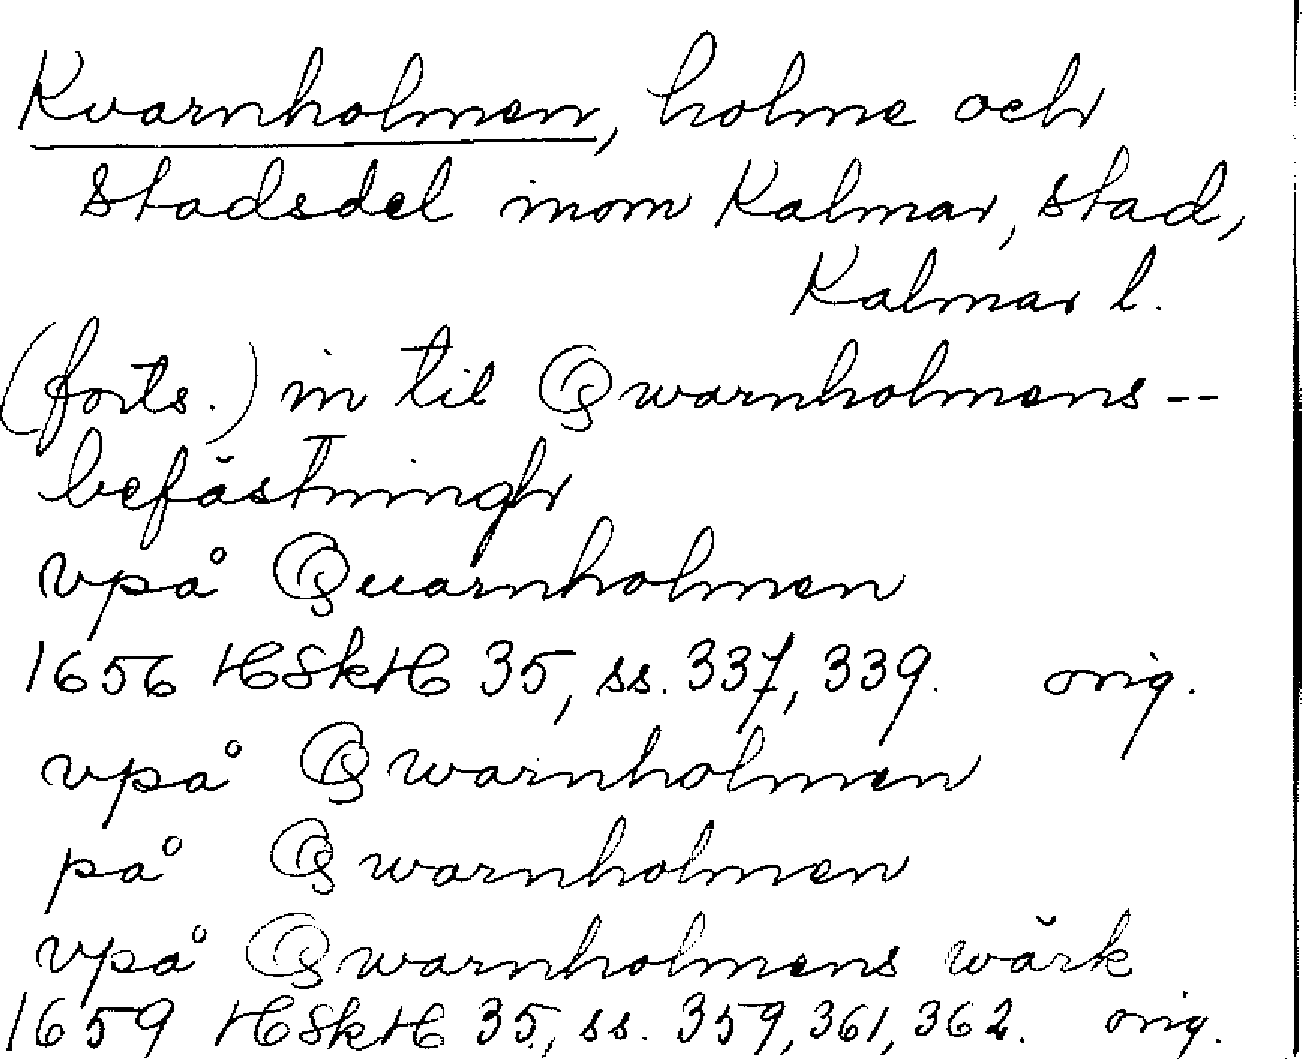 Kvarnholmen, holme och
stadsdel inom Kalmar, stad,
Kalmar l.
(forts.) in til Qwarnholmens--
befästningh
vpå Quarnholmen
1656 HSkH 35, ss. 337, 339. orig.
vpå Qwarnholmen
på Qwarnholmen
vpå Qwarnholmens wärk
1659 HSkH 35, ss. 359, 361, 362. orig.